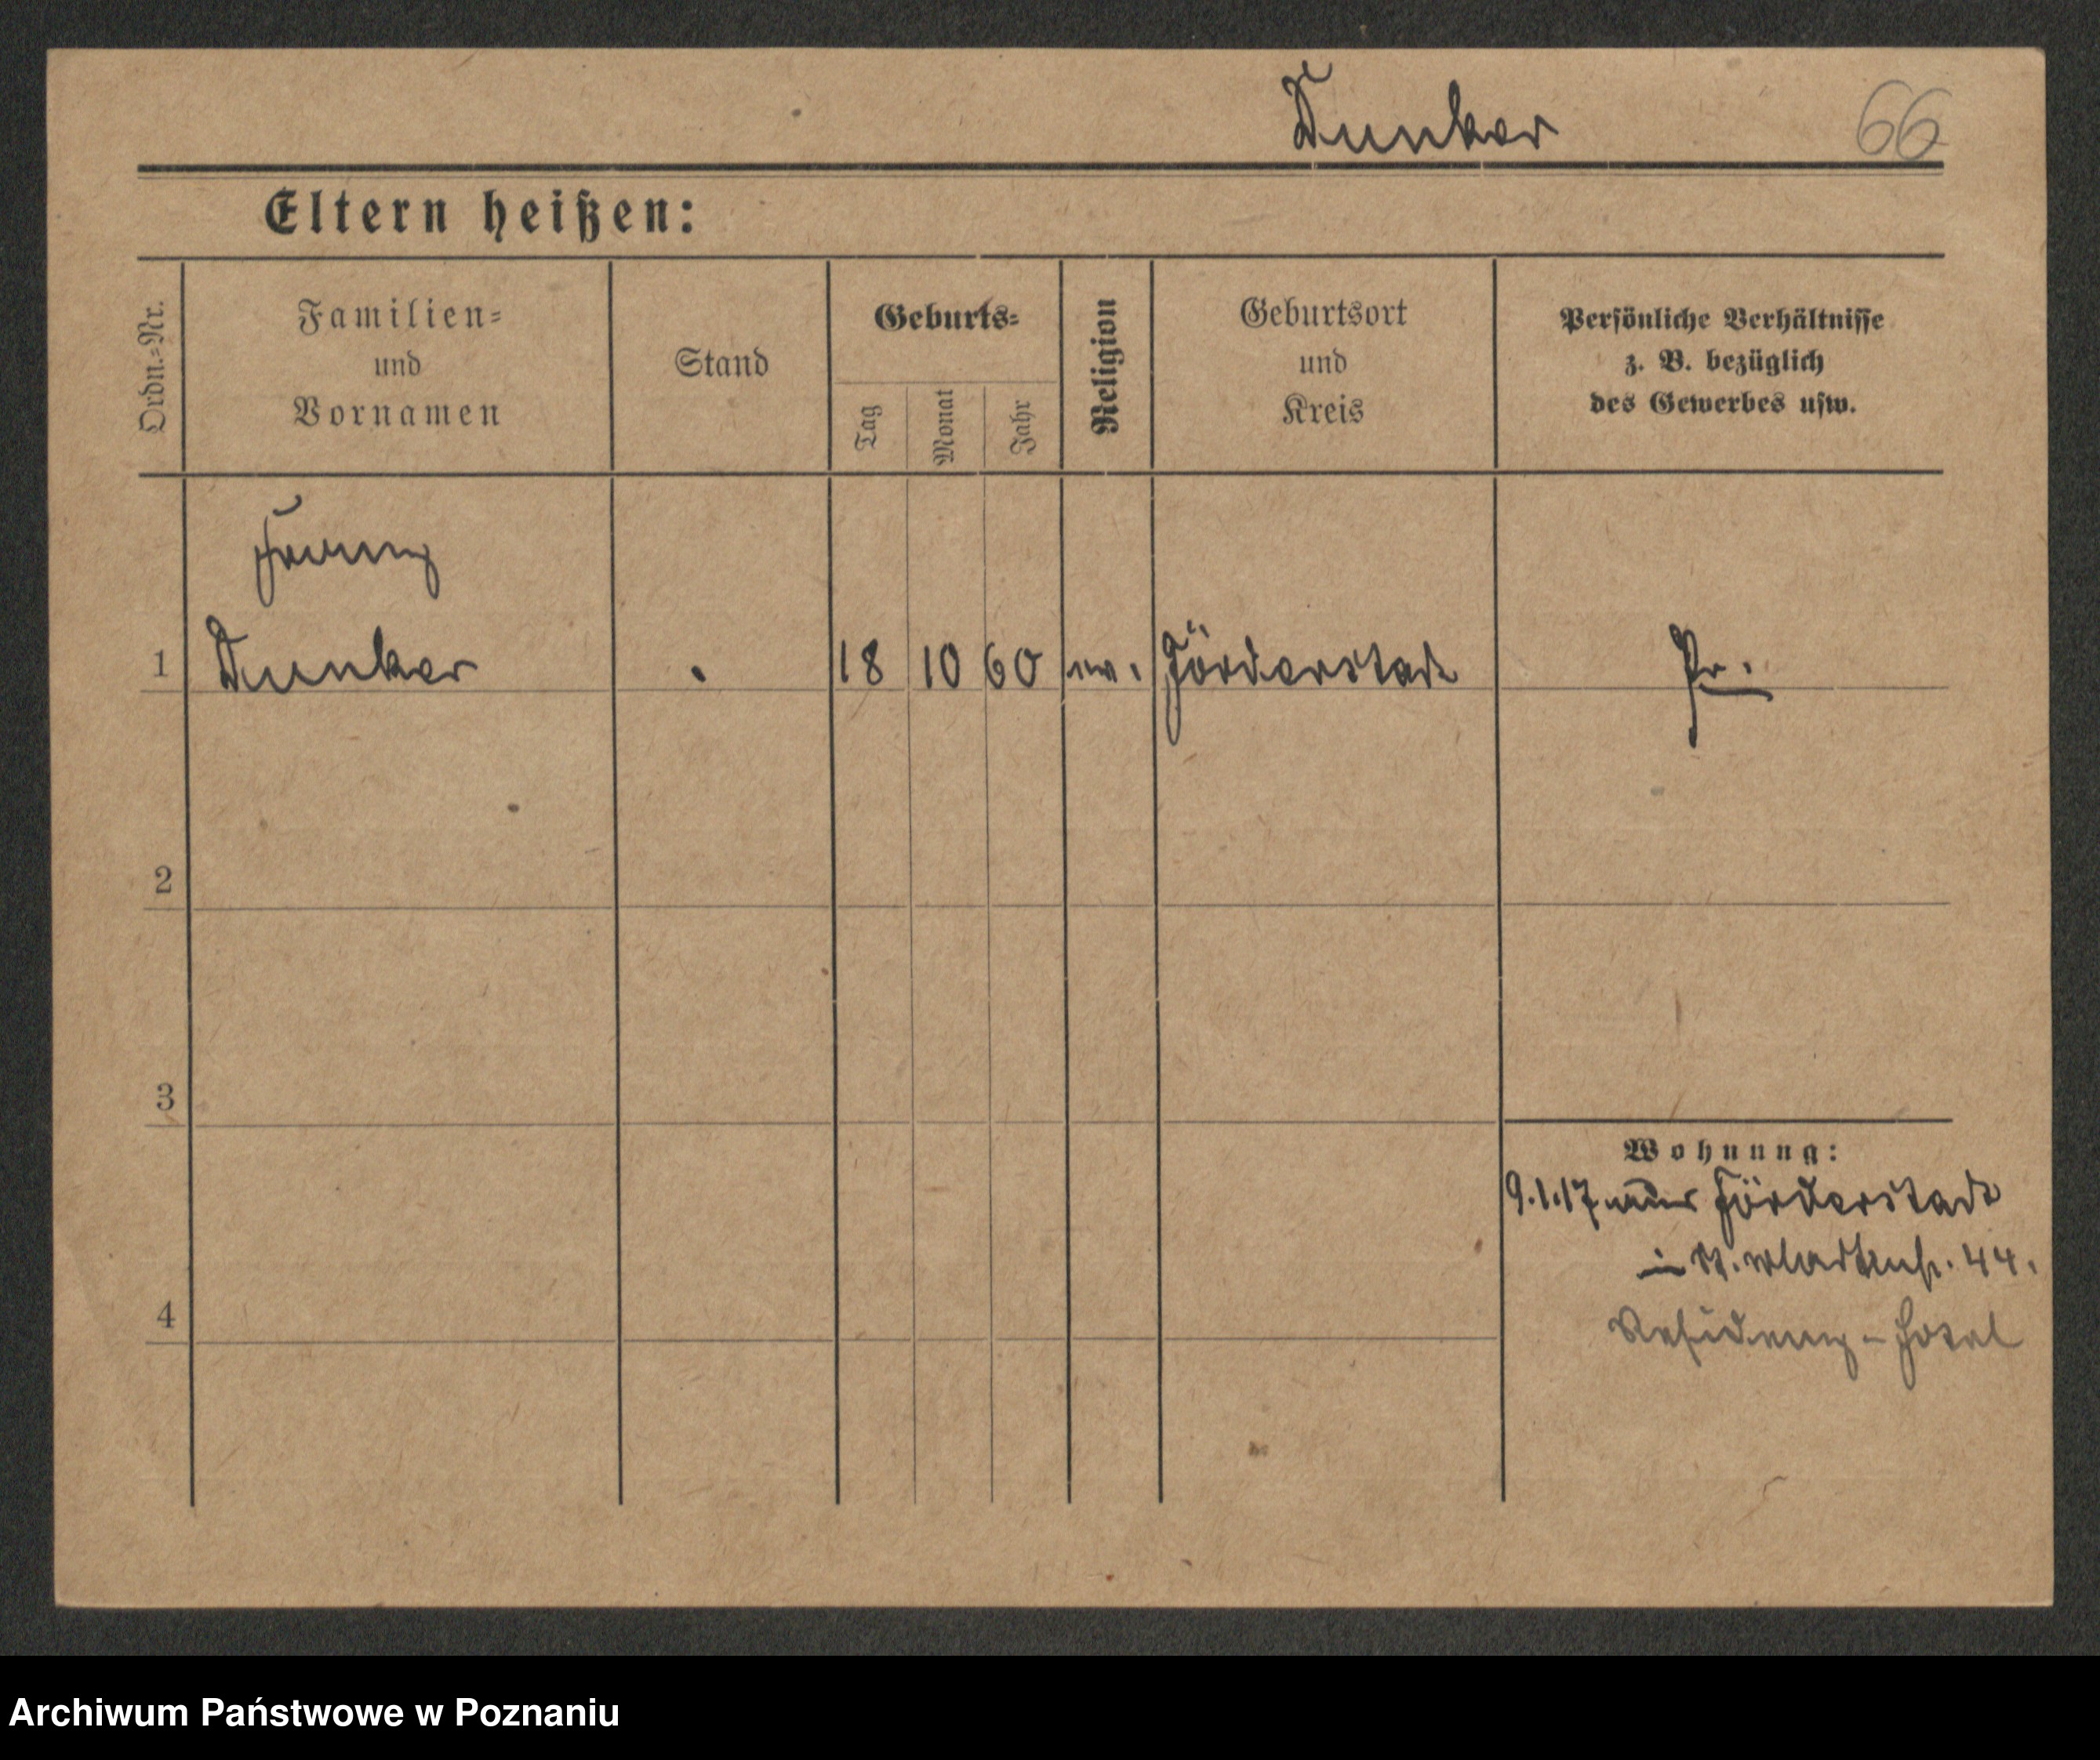 Dunker
66
Eltern heißen:
Ordn.-Nr.
Familien-
und
Vornamen
Stand
Geburts-
Tag
Monat
Jahr
Religion
Geburtsort
und
Kreis
Persönliche Verhältnisse
z. B. bezüglich
des Gewerbes usw.
Franz
1 Dunker 18 10 60 ev. Förderstadt Pr.
2
3
4
Wohnung:
9.1.17 aus Förderstadt
in 44.
Residenz-Hotel
Archiwum Państwowe w Poznaniu